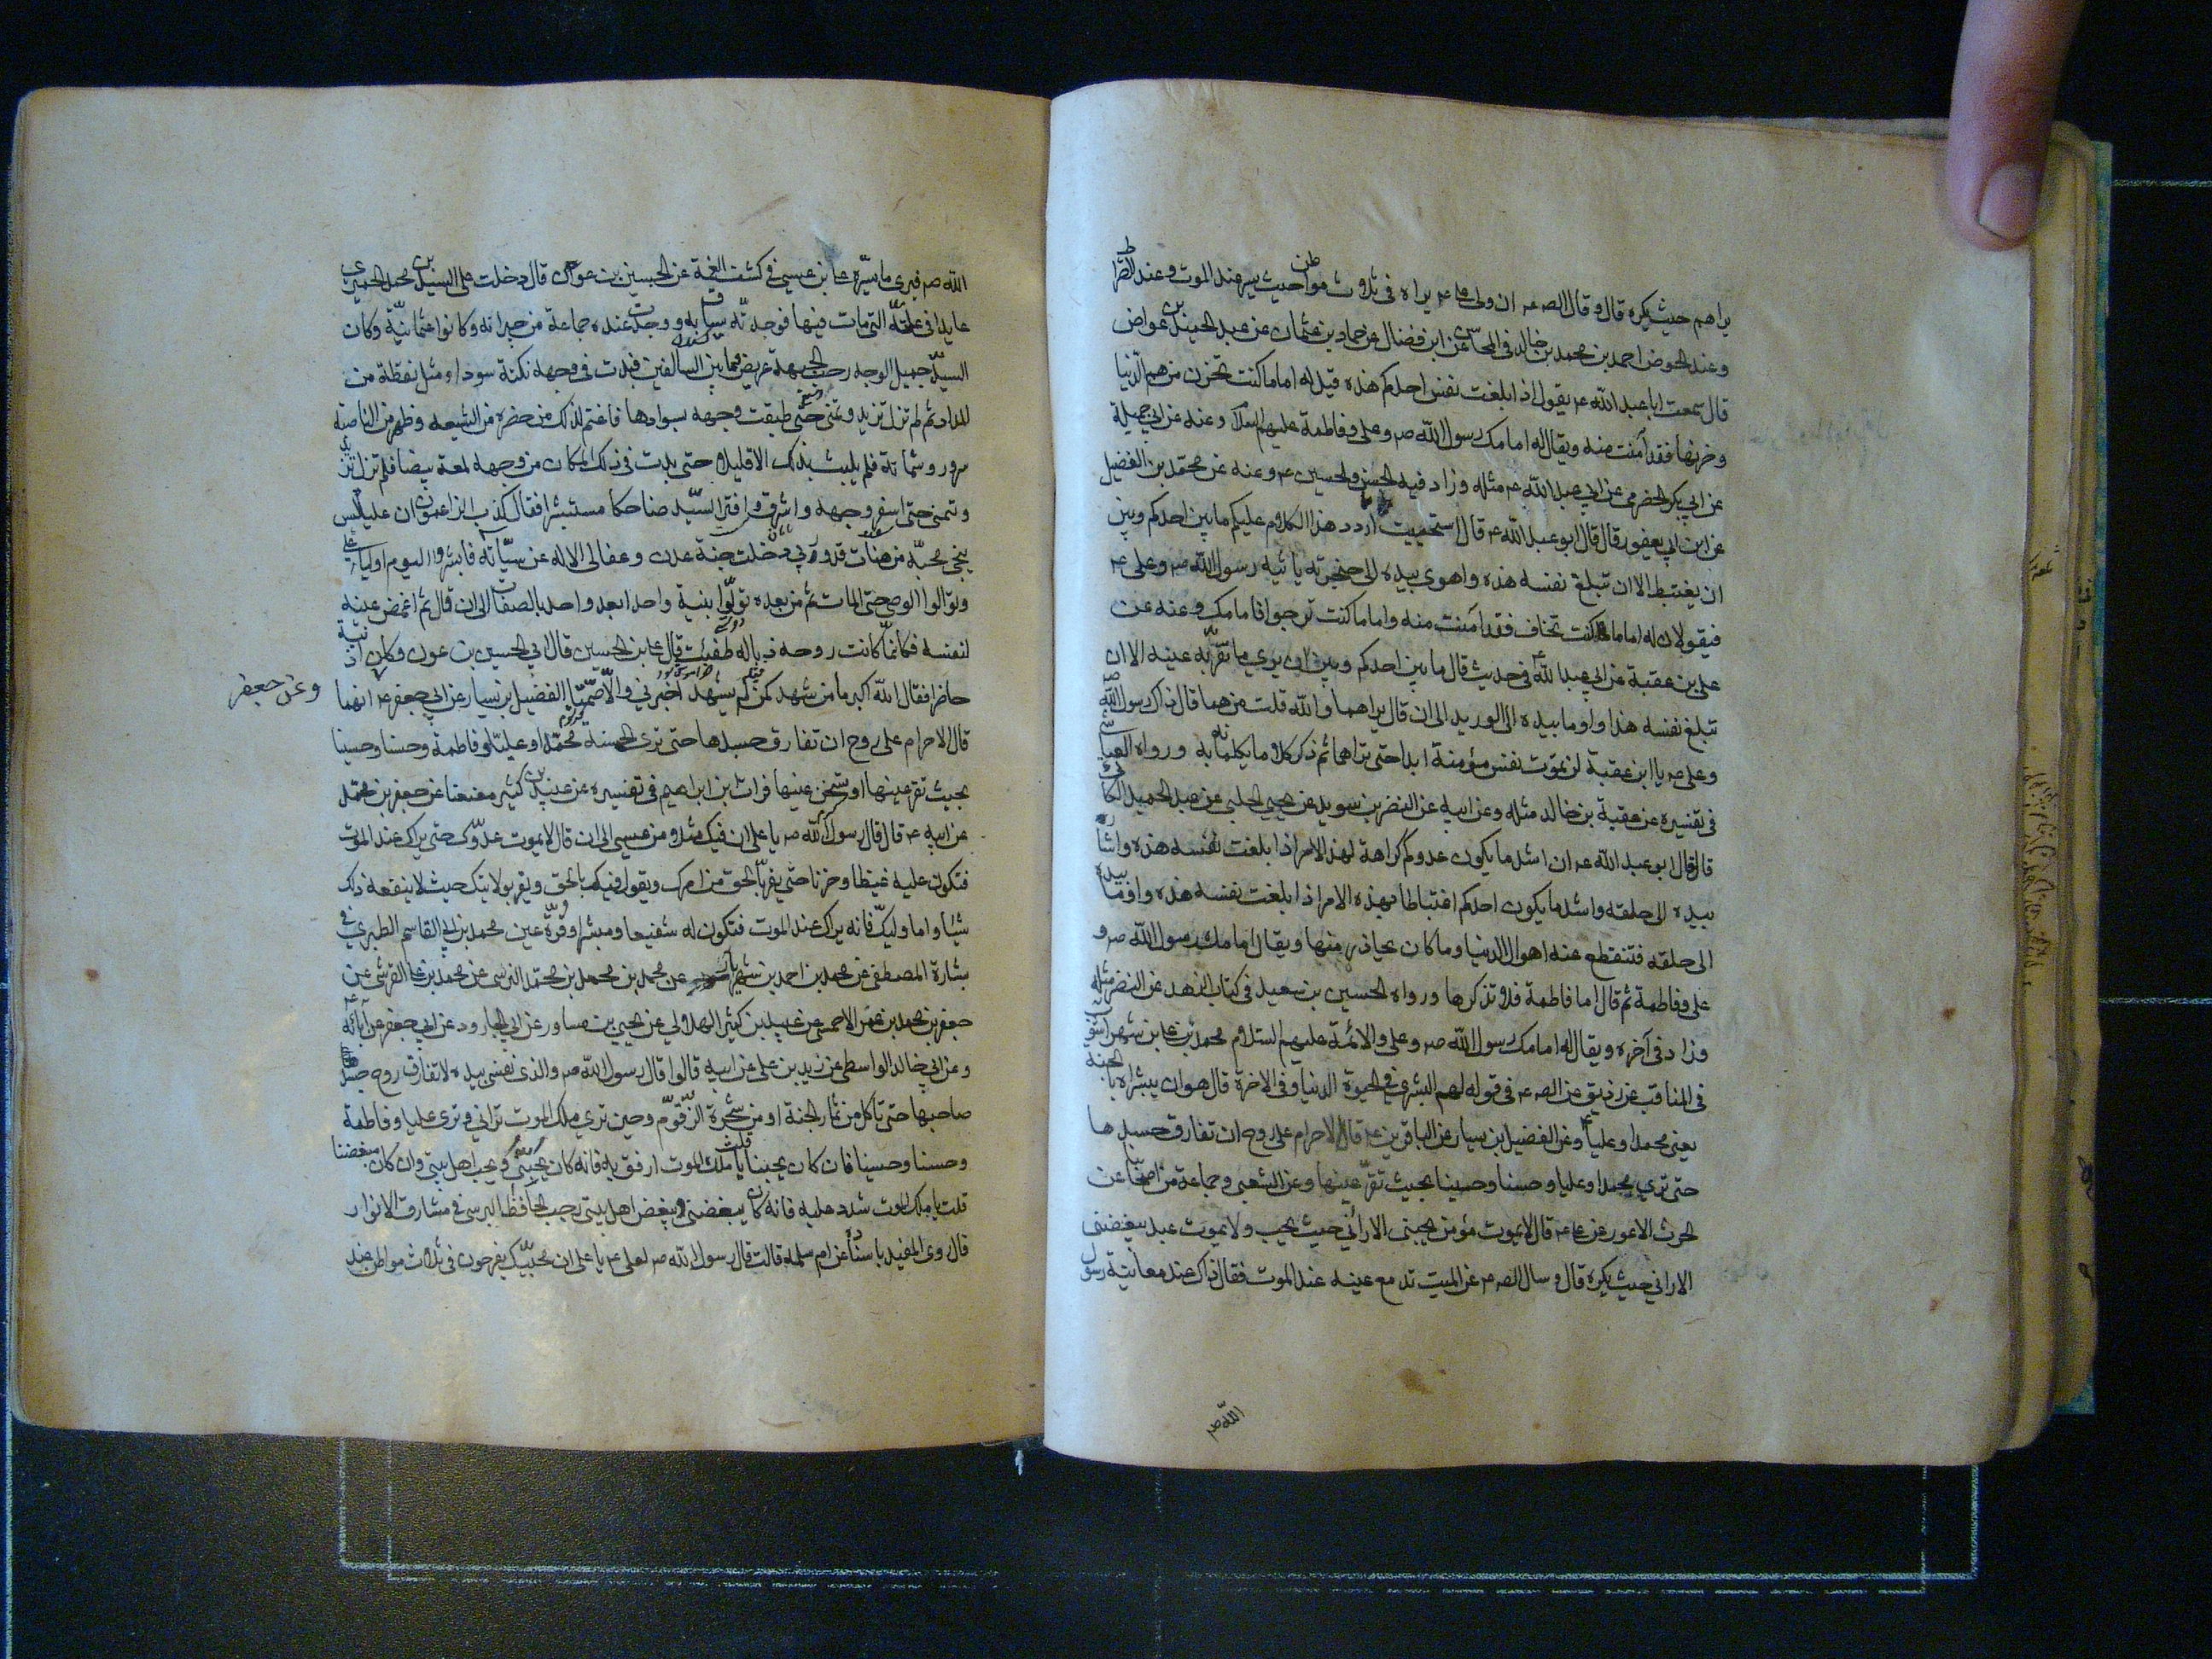 يراهم حيث يكره قال وقال الصه عه ان ولى على عه يراه في ثلاث مواطن حيث يسر عند الموت وعند الصراط
وعند الحوض احمد بن محمد بن خالد في المحاسن عن ابن فضال عن حماد بن عثمان عن عبد الحميد بن عواض
قال سمعت ابا عبد الله عه يقول اذا بلغت نفس احدكم هذه قيل له اما ما كنت تحزن من هم الدنيا
وحزنها فقد آمنت منه ويقال له امامك رسول الله صه وعلى وفاطمة عليهم السلام وعنه عن ابي جميلة
عن ابي بكر الحضرمي عن ابي عبد الله عه مثله وزاد فيه الحسن والحسين عه وعنه عن محمد بن الفضيل
عن ابن ابي يعفور قال قال ابو عبد الله عه قال استحييت اردد هذا الكلام عليكم ما بين احدكم وبين
ان يغتبط الا ان تبلغ نفسه هذه واهوى بيده الى حنجرته يأتيه رسول الله صه وعلى عه
فيقولان له اما ما كنت تخاف فقد آمنت منه واما ما كنت ترجوا فامامك وعنه عن
على بن عقبة عن ابي عبد الله ع في حديث قال ما بين احدكم وبين ان يرى ما تقرّ به عينه الا ان
تبلغ نفسه هذا واوما بيده الى الوريد الى ان قال يراهما والله قلت من هما قال ذاك رسول الله
وعلى صه يا ابن عقبة لن تموت نفس مؤمنة ابدا حتى تراهما ثم ذكر كلاما يكلمانه به ورواه العياشى
في تفسيره عن عقبة بن خالد مثله وعن ابيه عن النضر بن سويد عن يحيى الحلبي عن عبد الحميد
قال قال ابو عبد الله عه ان اشد ما يكون عدوكم كراهة لهذا الامر اذا بلغت نفسه هذه واشار
بيده الى حلقه واشد ما يكون احدكم اغتباطا بهذه الامر اذا بلغت نفسه هذه واوما بيده
الى حلقه فتنقطع عنه اهوال الدنيا وما كان يحاذر منها ويقال امامك رسول الله صه و
على وفاطمة ثم قال اما فاطمة فلا تذكرها ورواه الحسين بن سعيد في كتاب الزهد عن النضر مثله
وزاد في آخره ويقال له امامك رسول الله صه وعلى والائمة عليهم السلام محمد بن على بن شهر آشوب
في المناقب عن زريق عن الصه عه في قوله لهم البشرى في الحيوة الدنيا وفي الاخرة قال هو ان يبشراه بالجنة
يعنى محمدا وعليا ع وعن الفضيل بن يسار عن الباقرين عه قال الاحرام على روح ان تفارق جسدها
حتى ترى محمدا وعليا وحسنا وحسينا بحيث تقر عينها وعن الشعبى وجماعة من اصحابنا عن
الحرث الاعور عن على عه قال لا يموت مؤمن يحبنى الا رآنى حيث يحب ولا يموت عبد يبغضنى
الا رانى حيث يكره قال وسال الصه عه عن الميت تدمع عينه عند الموت فقال ذاك عند معاينة رسول
الله صه
الله صه فيرى ما يسّره على بن عيسى في كشف الغمة عن الحسين بن عون قال دخلت على السيد بن محمد الحميرى
عايدا في علته التى مات فيها فوجدته يساق به ووجدت عنده جماعة من جيرانه وكانوا عثمانيّة وكان
السيّد جميل الوجه رحب الجبهة عريض ما بين السالفتين فبدت في وجهه نكتة سودا مثل نقطة من
المداد ثم لم تزل تزيد وتنمى حتى طبقت وجهه بسوادها فاغتم لذلك من حضره من الشيعه وظهر من الناصبة
سرور وشماتة فلم يلبث بذلك الا قليلا حتى بدت في ذلك المكان من وجهه لمعة بيضا فلم تزل تزيد
وتنمى حتى اسفر وجهه واشرق وافتر السيّد ضاحكا مستبشرا فقال كذب الزاعمون ان عليا ليس
ينجى محبّه من هنات قد وربى دخلت جنة عدن وعفا لى الاله عن سيّأته فابشروا اليوم اولياء على
وتوالوا الوصى حتى الممات ثم من بعده تولّوا بنيه واحدا بعد واحد بالصفات الى ان قال ثم اغمض عينيه
لنفسه فكانما كانت روحه ذبالة طفئت قال على بن الحسين قال ابي الحسين بن عون وكان اذينة
حاضرا فقال الله اكبر ما من شهد كمن لم يشهد اخبرني والا صمّتا الفضيل بن يسار عن ابي جعفر عه انهما
وعن جعفر
قال الاحرام على روح ان تفارق جسدها حتى ترى الخمسة محمدا وعليا وفاطمة وحسنا وحسينا
بحيث تقر عينها او تسخن عينها فرات بن ابراهيم في تفسيره عن عبيد بن كثير معنعنا عن جعفر بن محمد
عن ابيه عه قال قال رسول الله صه يا على ان فيك مثلا من عيسى الى ان قال لا يموت عدوّك حتى يراك عند الموت
فتكون عليه غيظا وحزنا حتى يقر بالحق من امرك ويقول فيك بالحق ويقر بولايتك حيث لا ينفعه ذلك
شيئا واما وليك فانه يراك عند الموت فتكون له شفيعا ومبشرا وقرّة عين محمد بن ابي القاسم الطبري في
بشارة المصطفى عن محمد بن احمد بن شهريار عن محمد بن محمد بن محمد النرسى عن محمد بن على القرشى عن
جعفر بن محمد بن عمر الاحمسى عن عبيد بن كثير الهلالي عن يحيى بن مساور عن ابي الجارود عن ابي جعفر عن آبائه
وعن ابي خالد الواسطى عن زيد بن على عن ابيه قالوا قال رسول الله صه والذى نفسى بيده لا تفارق روح جسد
صاحبها حتى تأكل من ثمار الجنة او من شجرة الزقوم وحين ترى ملك الموت تراني وترى عليا وفاطمة
وحسنا وحسينا فان كان يحبنا قلت يا ملك الموت ارفق به فانه كان يحبنى ويحب اهل بيتى وان كان يبغضنا
قلت يا ملك الموت شدد عليه فانه كان يبغضنى ويبغض اهل بيتى رجب الحافظ البرسى في مشارق الانوار
قال روى المفيد باسناده عن ام سلمه قالت قال رسول الله صه لعلى عه يا على ان محبّيك يفرحون في ثلاث مواطن عند